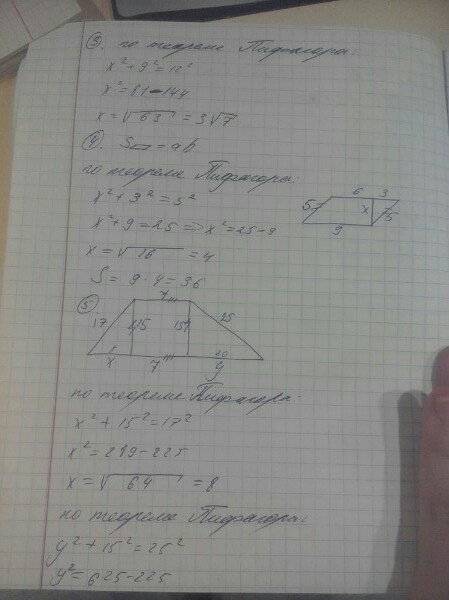 ③. по теореме Пифагора:
x²+9²=12²
x²=81-144
x=√63 = 3√7
④. S▱=ab
по теореме Пифагоры:
x²+3²=5²
x²+9=25 => x²=25-9
x=√16 =4
S= 9·4=36
6 3
5 x 5
9
⑤.
7
17 15 15 25
x 7 20 y
по теореме Пифагора:
x²+15²=17²
x²=289-225
x=√64 =8
по теореме Пифагоры:
y²+15²=25²
y²=625-225